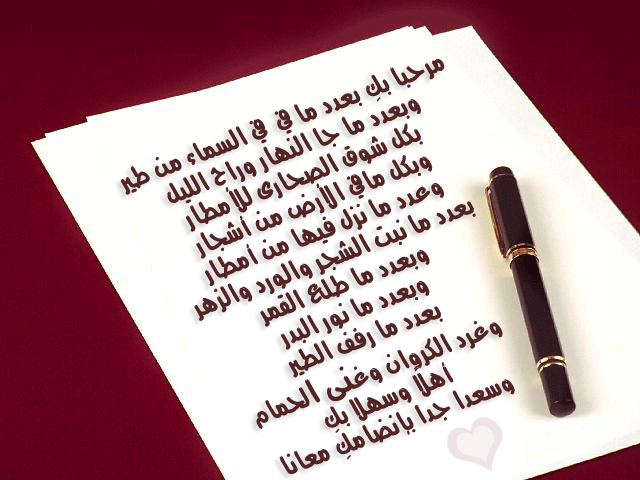 مرحبا بكِ بعدد ما في في السماء من طير
وبعدد ما جا النهار وراح الليل
بكل شوق الصحارى للأمطار
وبكل مافي الأرض من أشجار
وعدد ما نزل فيها من أمطار
بعدد ما نبت الشجر والورد والزهر
وبعدد ما طلع القمر
وبعدد ما نور البدر
بعدد ما رفف الطير
وغرد الكروان وغنى الحمام
أهلا وسهلا بكِ
وسعدا جدا بإنضمامكِ معانا